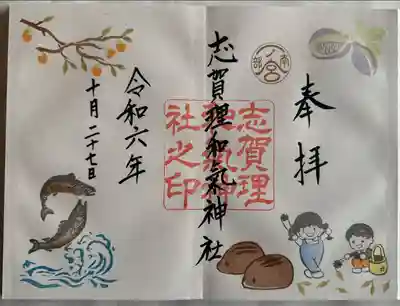 奉拝
南部一ノ宮
志賀理和氣神社
志賀理
和氣神
社之印
令和六年
十月二十七日